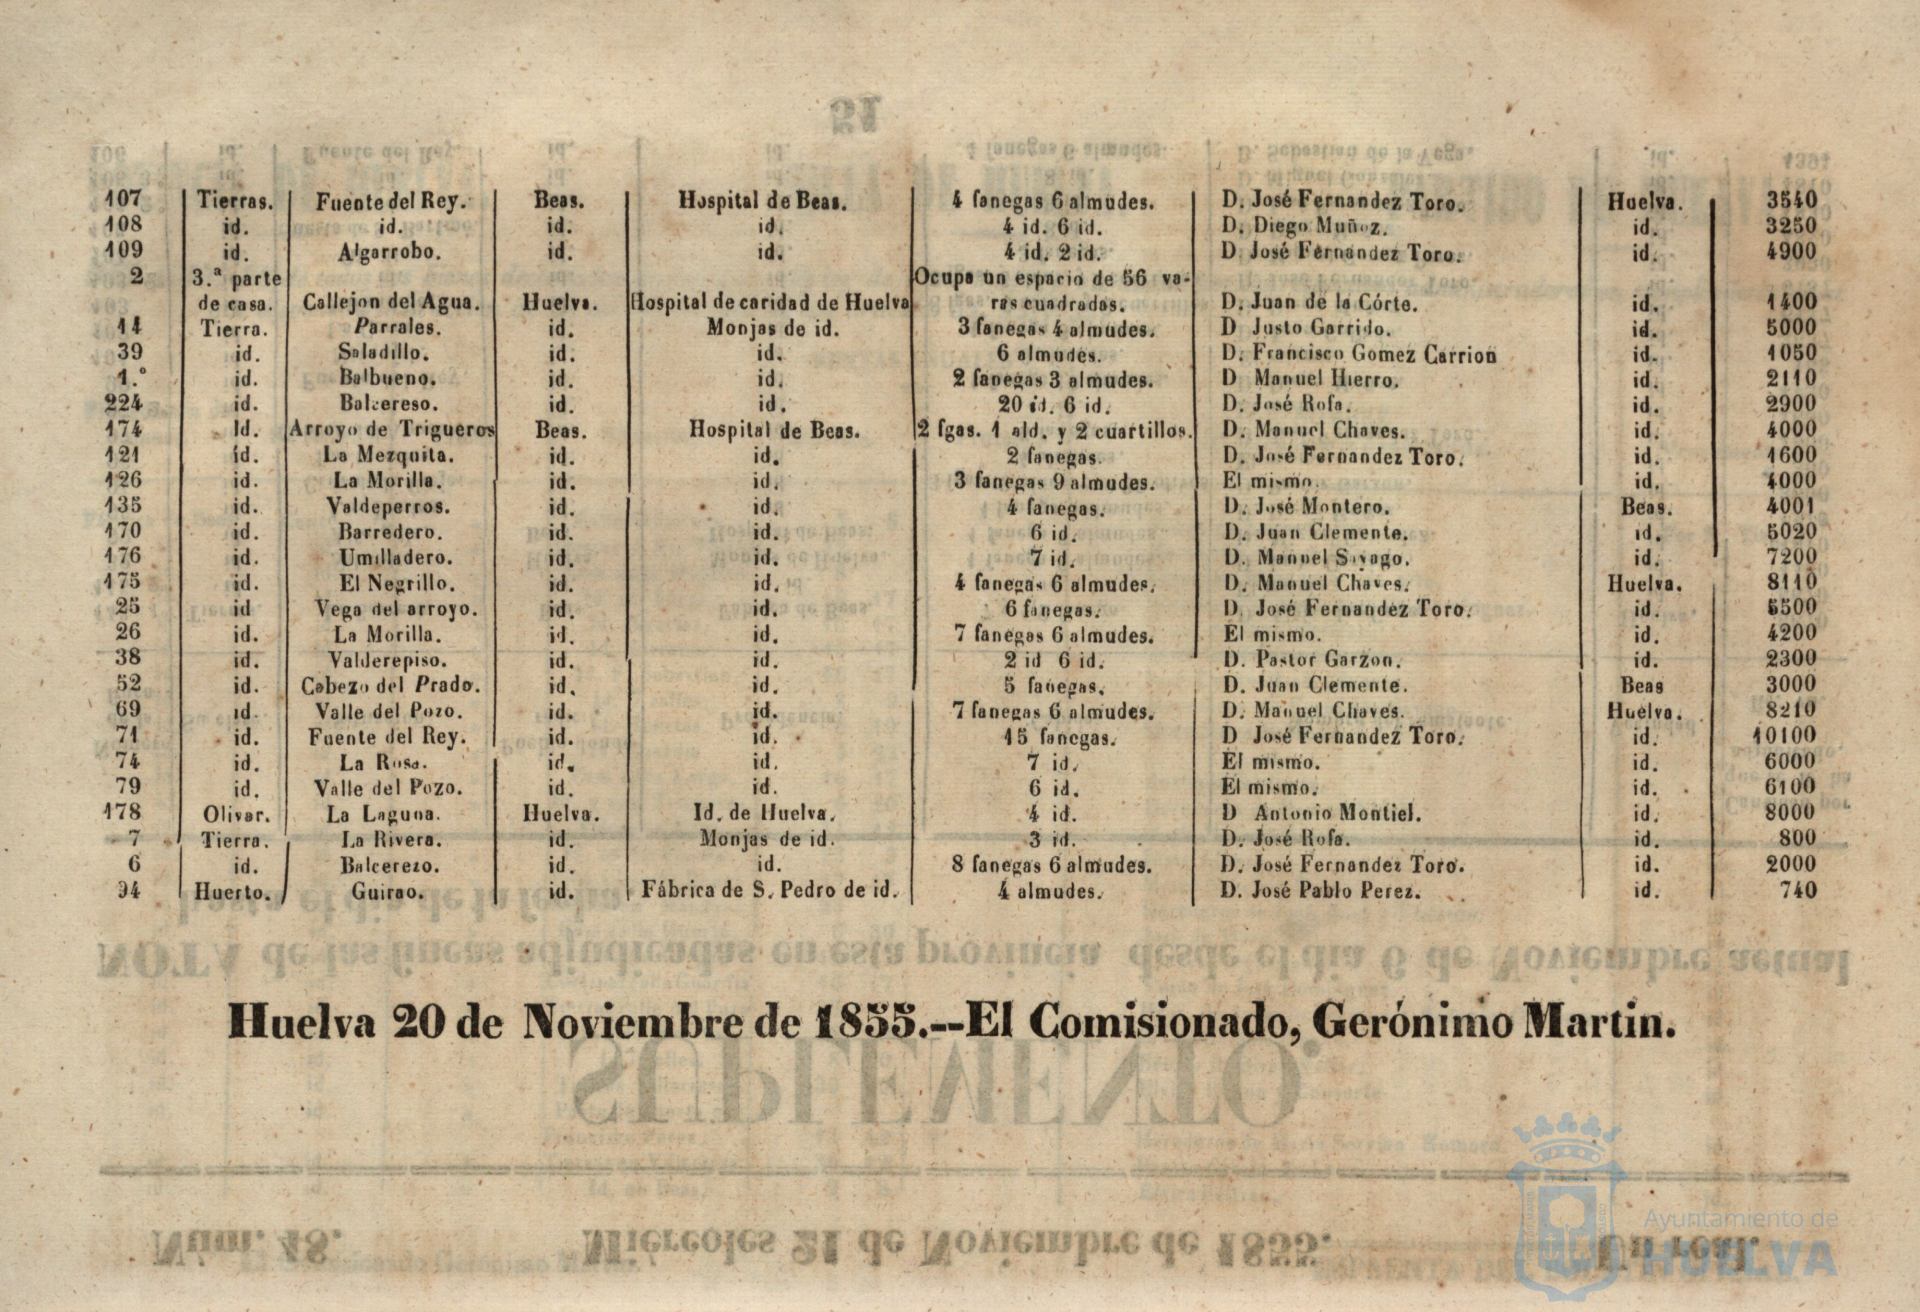 107 Tierras. Fuente del Rey. Beas. Hospital de Beas. 4 fanegas 6 almudes. D. José Fernandez Toro. Huelva. 3540
108 id. id. id. id. 4 id. 6 id. D. Diego Muñoz. id. 3250
109 id. Algarrobo. id. id. 4 id. 2 id. D José Fernandez Toro. id. 4900
2 3.ª parte Ocupa un espacio de 56 va-
de casa. Callejon del Agua. Huelva. Hospital de caridad de Huelva ras cuadradas. D. Juan de la Córte. id. 1400
14 Tierra. Parrales. id. Monjas de id. 3 fanegas 4 almudes. D Justo Garrido. id. 5000
39 id. Saladillo. id. id. 6 almudes. D. Francisco Gomez Carrion id. 1050
1.º id. Balbueno. id. id. 2 fanegas 3 almudes. D Manuel Hierro. id. 2110
224 id. Balcereso. id. id. 20 id. 6 id. D. José Rofa. id. 2900
174 Id. Arroyo de Trigueros Beas. Hospital de Beas. 2 fgas. 1 ald. y 2 cuartillos. D. Manuel Chaves. id. 4000
121 id. La Mezquita. id. id. 2 fanegas. D. José Fernandez Toro. id. 1600
126 id. La Morilla. id. id. 3 fanegas 9 almudes. El mismo. id. 4000
135 id. Valdeperros. id. id. 4 fanegas. D. José Montero. Beas. 4001
170 id. Barredero. id. id. 6 id. D. Juan Clemente. id. 5020
176 id. Umilladero. id. id. 7 id. D. Manuel Sayago. id. 7200
175 id. El Negrillo. id. id. 4 fanegas 6 almudes. D. Manuel Chaves. Huelva. 8110
25 id Vega del arroyo. id. id. 6 fanegas. D. José Fernandez Toro. id. 5500
26 id. La Morilla. id. id. 7 fanegas 6 almudes. El mismo. id. 4200
38 id. Valderepiso. id. id. 2 id 6 id. D. Pastor Garzon. id. 2300
52 id. Cabezo del Prado. id. id. 5 fanegas. D. Juan Clemente. Beas 3000
69 id. Valle del Pozo. id. id. 7 fanegas 6 almudes. D. Manuel Chaves. Huelva. 8210
71 id. Fuente del Rey. id. id. 15 fanegas. D José Fernandez Toro. id. 10100
74 id. La Rosa. id. id. 7 id. El mismo. id. 6000
79 id. Valle del Pozo. id. id. 6 id. El mismo. id. 6100
178 Olivar. La Laguna. Huelva. Id. de Huelva. 4 id. D Antonio Montiel. id. 8000
7 Tierra. La Rivera. id. Monjas de id. 3 id. D. José Rofa. id. 800
6 id. Balcerezo. id. id. 8 fanegas 6 almudes. D. José Fernandez Toro. id. 2000
94 Huerto. Guirao. id. Fábrica de S. Pedro de id. 4 almudes. D. José Pablo Perez. id. 740
Huelva 20 de Noviembre de 1855.--El Comisionado, Gerónimo Martin.
Ayuntamiento de
HUELVA